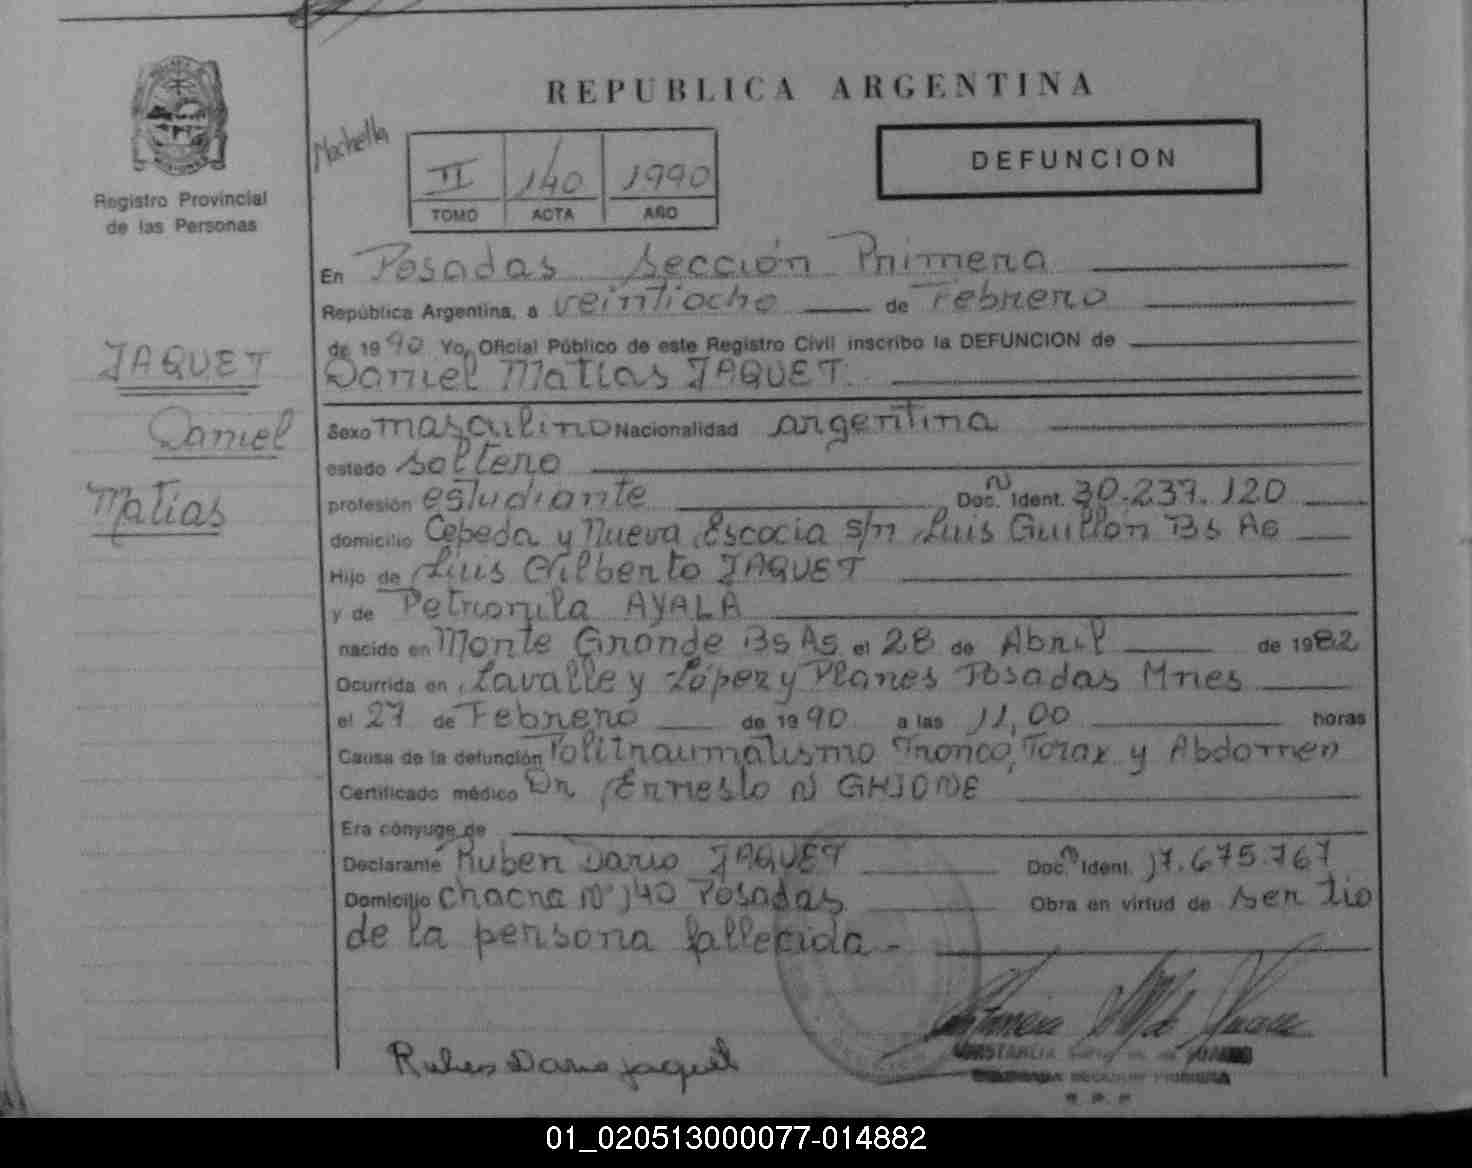 REPUBLICA ARGENTINA
Registro Provincial
de las Personas
II 140 1990
TOMO ACTA AÑO
DEFUNCION
JAQUET
Daniel
Matias
En Posadas Sección Primera
República Argentina, a veintiocho de Febrero
de 1990 Yo, Oficial Público de este Registro Civil inscribo la DEFUNCION de
Daniel Matias JAQUET
Sexo masculino Nacionalidad argentina
estado soltero
profesión estudiante Doc. N Ident. 30.237.120
domicilio Cepeda y Nueva Escocia s/n Luis Guillón Bs As
Hijo de Luis Gilberto JAQUET
y de Petronila AYALA
nacido en Monte Grande Bs As el 28 de Abril de 1982
Ocurrida en Lavalle y López y Planes Posadas Mnes
el 27 de Febrero de 1990 a las 11,00 horas
Causa de la defunción Politraumatismo Tronco, Torax y Abdomen
Certificado médico Dr Ernesto N GHIONE
Era cónyuge de
Declarante Ruben Dario JAQUET Doc. N Ident. 17.675.767
Domicilio chacra Nº 140 Posadas Obra en virtud de ser tio
de la persona fallecida -
Ruben Dario Jaquet
01_020513000077-014882